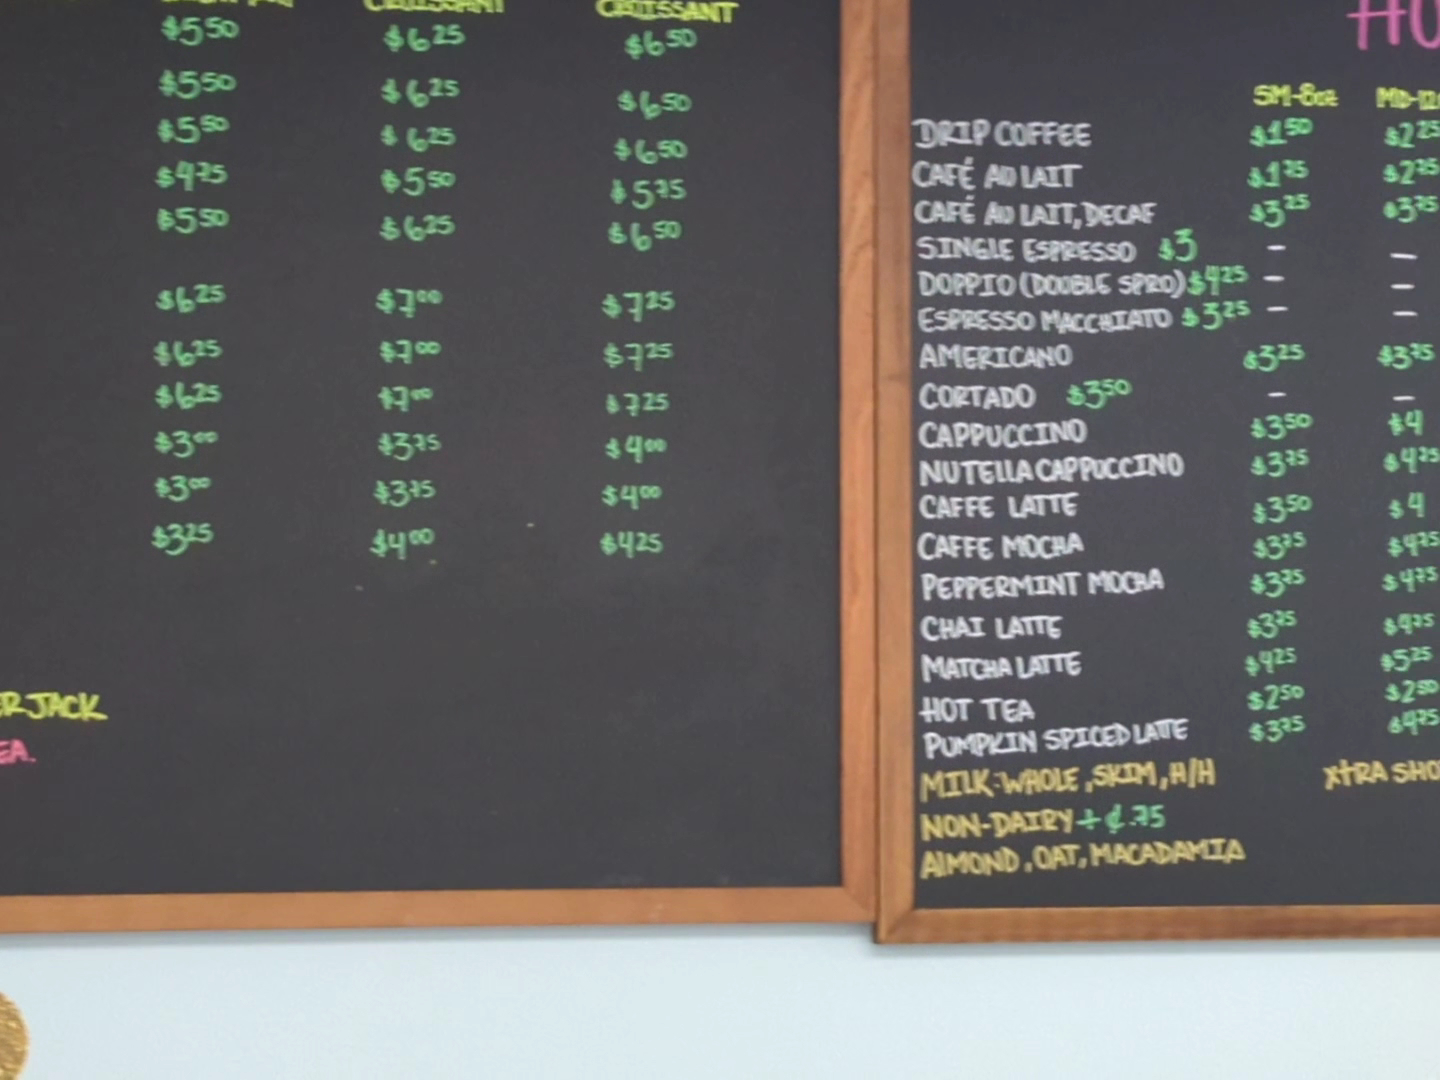 CROISSANT CROISSANT
$5.50 $6.25 $6.50
$5.50 $6.25 $6.50
$5.50 $6.25 $6.50
$4.75 $5.50 $5.75
$5.50 $6.25 $6.50
$6.25 $7.00 $7.25
$6.25 $7.00 $7.25
$6.25 $7.00 $7.25
$3.00 $3.75 $4.00
$3.00 $3.75 $4.00
$3.25 $4.00 $4.25
ER JACK
EA.
HO
SM-8oz MD-12
DRIP COFFEE $1.50 $2.25
CAFÉ AU LAIT $1.75 $2.75
CAFÉ AU LAIT, DECAF $3.25 $3.75
SINGLE ESPRESSO $3 - -
DOPPIO (DOUBLE SPRO) $4.25 - -
ESPRESSO MACCHIATO $3.25 - -
AMERICANO $3.25 $3.75
CORTADO $3.50 - -
CAPPUCCINO $3.50 $4
NUTELLA CAPPUCCINO $3.75 $4.75
CAFFE LATTE $3.50 $4
CAFFE MOCHA $3.75 $4.75
PEPPERMINT MOCHA $3.75 $4.75
CHAI LATTE $3.75 $4.75
MATCHA LATTE $4.25 $5.25
HOT TEA $2.50 $2.50
PUMPKIN SPICED LATTE $3.75 $4.75
MILK: WHOLE, SKIM, H/H XTRA SHO
NON-DAIRY + ¢.75
ALMOND, OAT, MACADAMIA